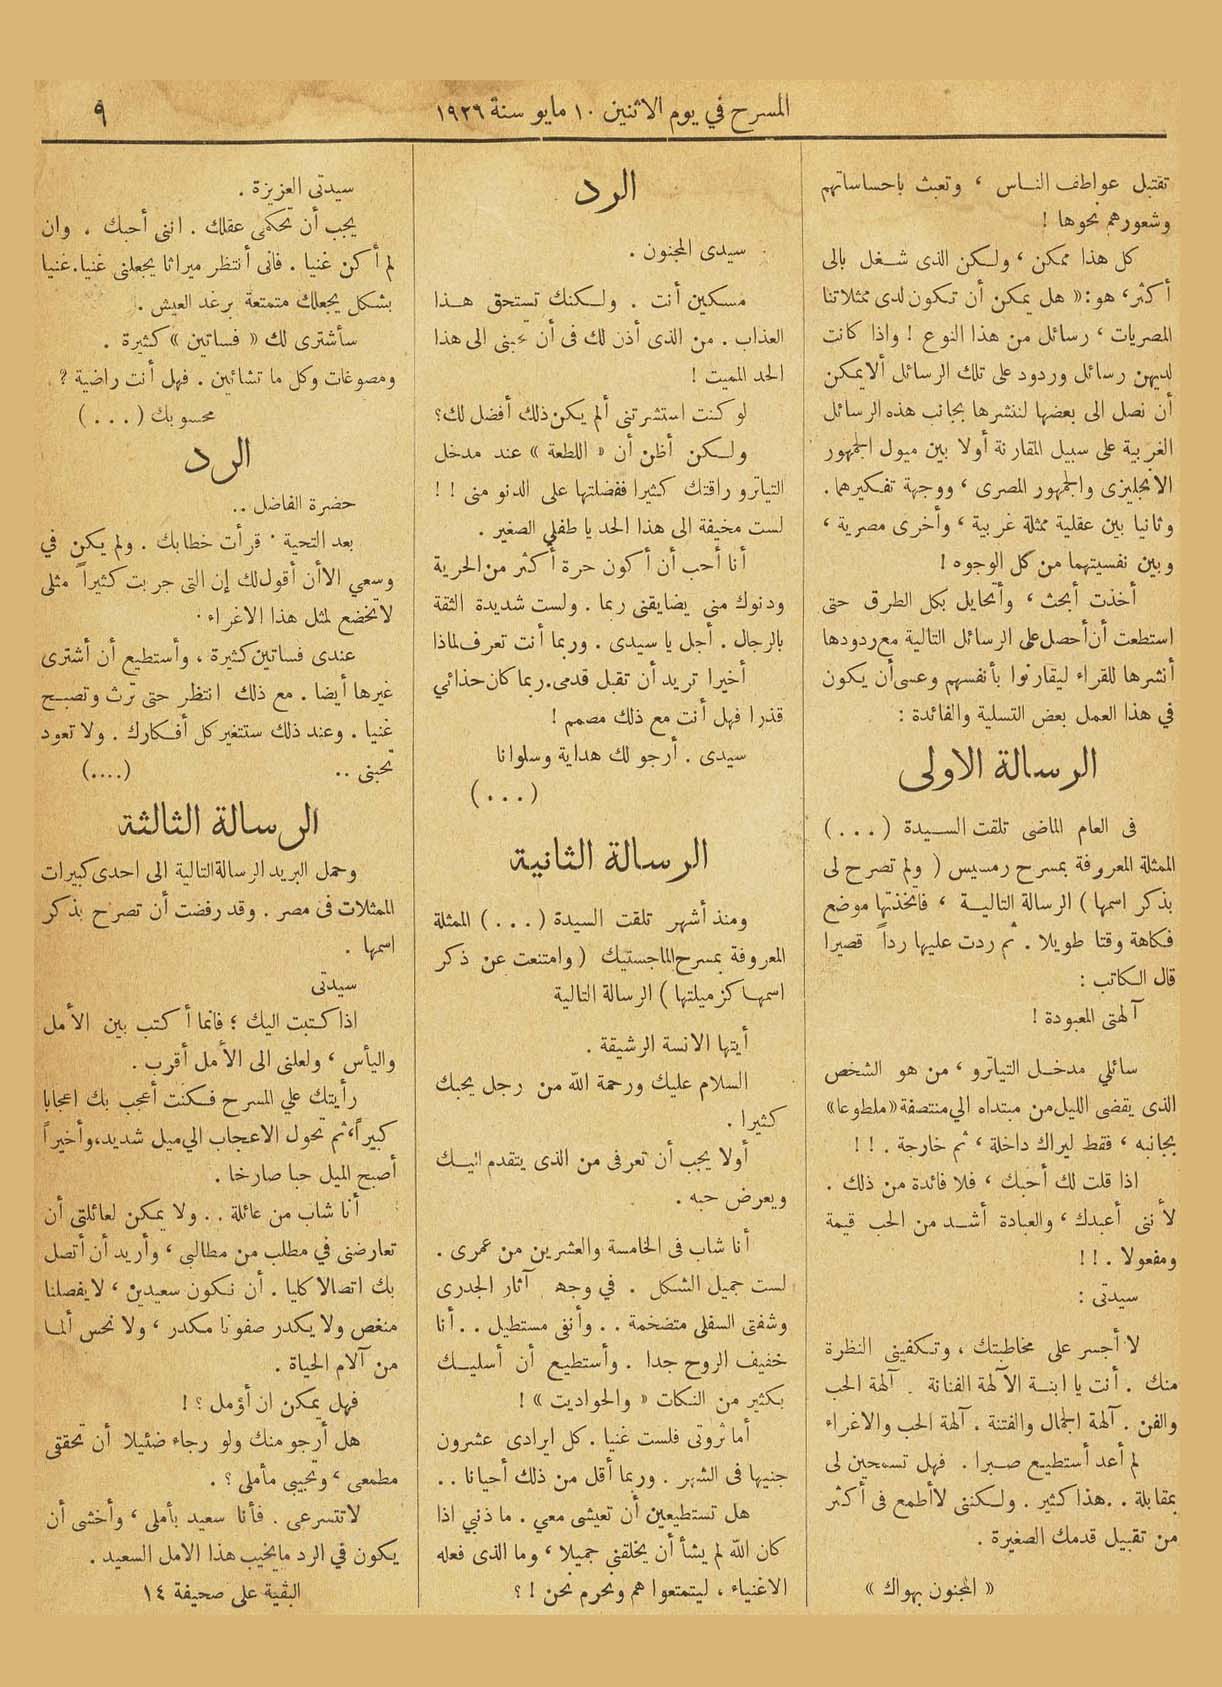 المسرح في يوم الاثنين ١٠ مايو سنة ١٩٢٦
٩
تقتبل عواطف الناس ، وتعبث باحساساتهم
وشعورهم نحوها !
كل هذا ممكن ، ولكن الذى شغل بالى
أكثر ، هو : « هل يمكن أن تكون لدى ممثلاتنا
المصريات ، رسائل من هذا النوع ! واذا كانت
لديهن رسائل وردود على تلك الرسائل ألا يمكن
أن نصل الى بعضها لننشرها بجانب هذه الرسائل
الغربية على سبيل المقارنة أولا بين ميول الجمهور
الانجليزى والجمهور المصرى ، ووجهة تفكيرهما .
وثانيا بين عقلية ممثلة غربية ، وأخرى مصرية ،
وبين نفسيتهما من كل الوجوه !
أخذت أبحث ، وأتحايل بكل الطرق حتى
استطعت أن أحصل على الرسائل التالية مع ردودها
أنشرها للقراء ليقارنوا بأنفسهم وعسى أن يكون
في هذا العمل بعض التسلية والفائدة :
الرسالة الاولى
فى العام الماضى تلقت السيدة ( . . . )
الممثلة المعروفة بمسرح رمسيس ( ولم تصرح لى
بذكر اسمها ) الرسالة التالية ، فاتخذتها موضع
فكاهة وقتا طويلا . ثم ردت عليها رداً قصيرا
قال الكاتب :
آلهتى المعبودة !
سائلي مدخل التياترو ، من هو الشخص
الذى يقضى الليل من مبتداه الي منتصفة « ملطوعا »
بجانبه ، فقط ليراك داخلة ، ثم خارجة . ! !
اذا قلت لك أحبك ، فلا فائدة من ذلك .
لأننى أعبدك ، والعبادة أشد من الحب قيمة
ومفعولا . ! !
سيدتى :
لا أجسر على مخاطبتك ، وتكفينى النظرة
منك . أنت يا ابنة الآلهة الفنانة . آلهة الحب
والفن . آلهة الجمال والفتنة . آلهة الحب والاغراء
لم أعد أستطيع صبرا . فهل تسمحين لى
بمقابلة . . هذا كثير . ولكننى لا أطمع فى أكثر
من تقبيل قدمك الصغيرة .
« المجنون بهواك »
الرد
سيدى المجنون .
مسكين أنت . ولكنك تستحق هذا
العذاب . من الذى أذن لك فى أن تحبنى الى هذا
الحد المميت !
لو كنت استشرتنى ألم يكن ذلك أفضل لك ؟
ولكن أظن أن « اللطعة » عند مدخل
التياترو راقتك كثيرا ففضلتها على الدنو منى ! !
لست مخيفة الى هذا الحد يا طفلي الصغير .
أنا أحب أن أكون حرة أكثر من الحرية
ودنوك منى يضايقنى ربما . ولست شديدة الثقة
بالرجال . أجل يا سيدى . وربما أنت تعرف لماذا
أخيرا تريد أن تقبل قدمى . ربما كان حذائي
قذرا فهل أنت مع ذلك مصمم !
سيدى . أرجو لك هداية وسلوانا
( . . . )
الرسالة الثانية
ومنذ أشهر تلقت السيدة ( . . . ) الممثلة
المعروفة بمسرح الماجستيك ( وامتنعت عن ذكر
اسمها كزميلتها ) الرسالة التالية
أيتها الانسة الرشيقة .
السلام عليك ورحمة الله من رجل يحبك
كثيرا .
أولا يجب أن تعرفى من الذى يتقدم اليك
ويعرض حبه .
أنا شاب فى الخامسة والعشرين من عمرى .
لست جميل الشكل . في وجهي آثار الجدرى
وشفتى السفلى متضخمة . . وأنفى مستطيل . . أنا
خفيف الروح جدا . وأستطيع أن أسليك
بكثير من النكات « والحواديت » !
أما ثروتى فلست غنيا . كل ايرادى عشرون
جنيها فى الشهر . وربما أقل من ذلك أحيانا . .
هل تستطيعين أن تعيشى معي . ما ذنبي اذا
كان الله لم يشأ أن يخلقنى جميلا ، وما الذى فعله
الاغنياء ، ليتمتعوا هم ونحرم نحن ! ؟
سيدتى العزيزة .
يجب أن تحكمى عقلك . اننى أحبك . وان
لم أكن غنيا . فانى أنتظر ميراثا يجعلنى غنيا . غنيا
بشكل يجعلك متمتعة برغد العيش .
سأشترى لك « فساتين » كثيرة .
ومصوغات وكل ما تشائين . فهل أنت راضية ؟
محسوبك ( . . . )
الرد
حضرة الفاضل ..
بعد التحية . قرأت خطابك . ولم يكن في
وسعي الا أن أقول لك إن التى جربت كثيراً مثلى
لا تخضع لمثل هذا الاغراء .
عندى فساتين كثيرة ، وأستطيع أن أشترى
غيرها أيضا . مع ذلك انتظر حتى ترث وتصبح
غنيا . وعند ذلك ستتغير كل أفكارك . ولا تعود
تحبنى .. (....)
الرسالة الثالثة
وحمل البريد الرسالة التالية الى احدى كبيرات
الممثلات فى مصر . وقد رفضت أن تصرح بذكر
اسمها .
سيدتى
اذا كتبت اليك ؛ فانما أكتب بين الأمل
واليأس ، ولعلنى الى الأمل أقرب .
رأيتك علي المسرح فكنت أعجب بك اعجابا
كبيراً ، ثم تحول الاعجاب الي ميل شديد ، وأخيراً
أصبح الميل حبا صارخا .
أنا شاب من عائلة . . ولا يمكن لعائلتى أن
تعارضنى في مطلب من مطالبى ، وأريد أن أتصل
بك اتصالا كليا . أن نكون سعيدين ، لا يفصلنا
منغص ولا يكدر صفونا مكدر ، ولا نحس ألما
من آلام الحياة .
فهل يمكن ان أؤمل ؟ !
هل أرجو منك ولو رجاء ضئيلا أن تحققى
مطمعى ، وتجيبى مأملى ؟ .
لا تتسرعى . فأنا سعيد بأملى ، وأخشى أن
يكون في الرد ما يخيب هذا الامل السعيد .
البقية على صحيفة ١٤